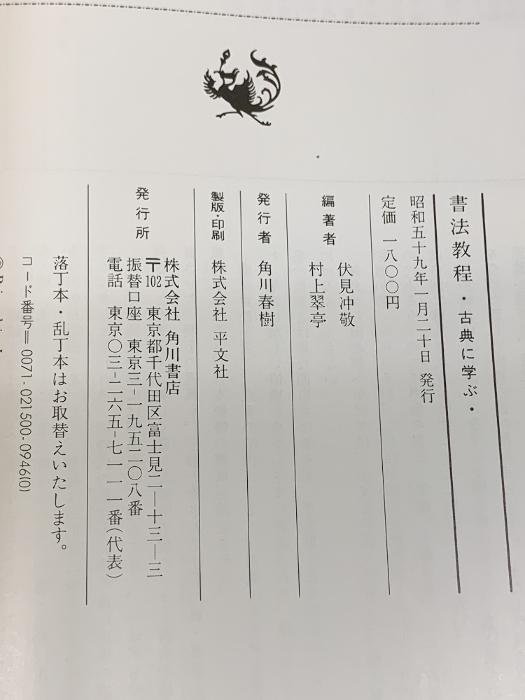 書法教程・古典に学ぶ・
昭和五十九年一月二十日 発行
定価 一八〇〇円
編著者 伏見冲敬
村上翠亭
発行者 角川春樹
製版・印刷 株式会社 平文社
発行所 株式会社 角川書店
〒102 東京都千代田区富士見二―十三―三
振替口座 東京三―一九五二〇八番
電話 東京〇三―二六五―七一一一番(代表)
落丁本・乱丁本はお取替えいたします。
コード番号＝0071-021500-0946(0)